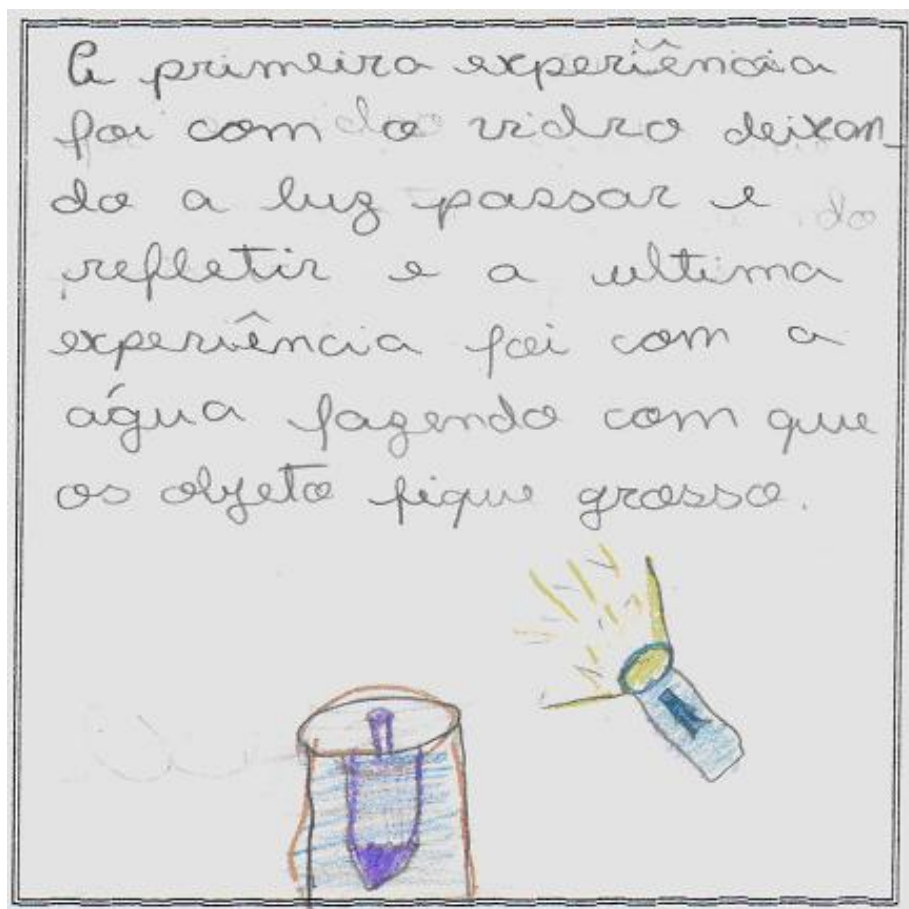 A primeira experiência
foi com o vidro deixan_
do a luz passar e
refletir e a ultima
experiência foi com a
água fazendo com que
os objeto fique grosso.